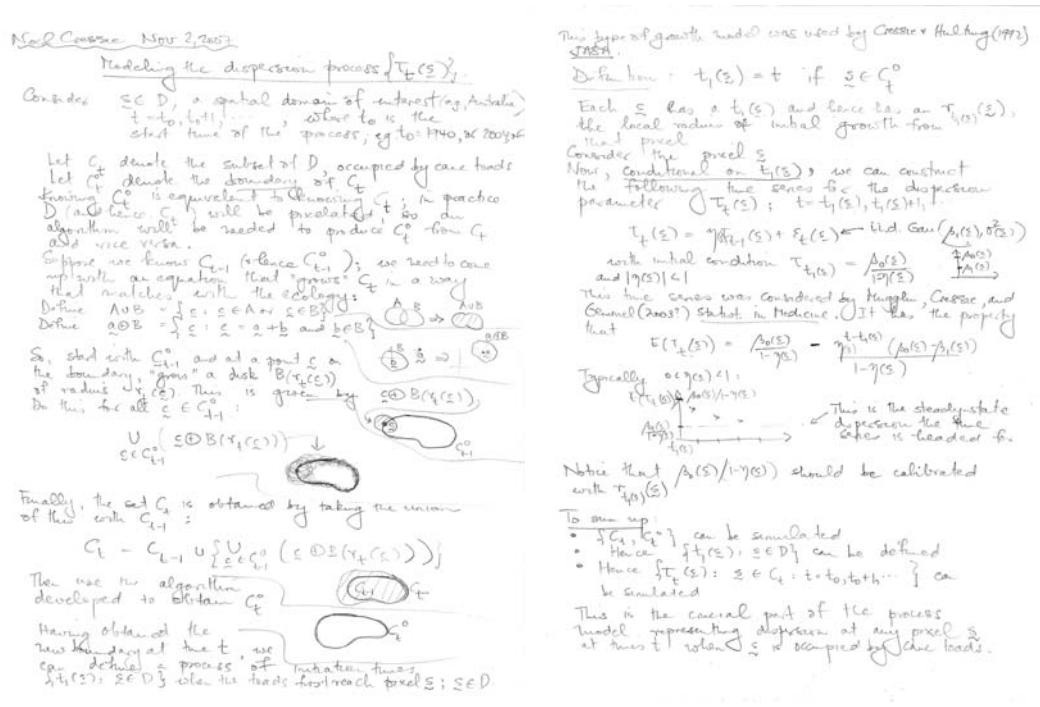 Noel Cressie Nov 2, 2007
Modeling the dispersion process {τ_t(s)}.
Consider s ∈ D, a spatial domain of interest (eg, Australia)
t = t₀, t₀+1, ..., where t₀ is the
start time of the process; eg t₀ = 1940, or
Let C_t denote the subset of D, occupied by cane toads
Let C_t⁰ denote the boundary of C_t
Knowing C_t⁰ is equivalent to knowing C_t; in practice
D (and hence C_t) will be pixelated, so an
algorithm will be needed to produce C_t⁰ from C_t
and vice versa.
Suppose we know C_{t-1} (& hence C_{t-1}⁰); we need to come
up with an equation that "grows" C_t in a way
that matches with the ecology:
Define A∪B = {s : s ∈ A or s ∈ B}
Define a⊕B = {c : c = a + b and b ∈ B}
A B ⇒ A∪B
B ⇒ a⊕B
So, start with C_{t-1}⁰ and at a point s on
the boundary, "grow" a disk B(r_t(s))
of radius r_t(s). This is given by s⊕B(r_t(s)).
Do this for all s ∈ C_{t-1}⁰:
∪_{s∈C_{t-1}⁰} (s⊕B(r_t(s)))
C_{t-1}⁰
Finally, the set C_t is obtained by taking the union
of this with C_{t-1}:
C_t = C_{t-1} ∪ {∪_{s∈C_{t-1}⁰} (s⊕B(r_t(s)))}
Then use the algorithm
developed to obtain C_t⁰
C_{t-1} C_t
C_t⁰
Having obtained the
new boundary at time t, we
can define a process of initiation times
{t₁(s): s∈D} when the toads first reach pixel s; s∈D
This type of growth model was used by Cressie & Hulting (1992)
JASA.
Definition: t₁(s) = t if s ∈ C_t⁰
Each s has a t₁(s) and hence has an r_{t₁(s)}(s),
the local radius of initial growth from
that pixel
Consider the pixel s
Now, conditional on t₁(s), we can construct
the following time series for the dispersion
parameter τ_t(s); t = t₁(s), t₁(s)+1, ...
τ_t(s) = η(s)τ_{t-1}(s) + ε_t(s) ← i.i.d. Gau(β₁(s), σ²(s))
with initial condition τ_{t₁(s)} = β₀(s)/1-η(s)
β₀(s)
β₁(s)
and |η(s)| < 1
This time series was considered by Mugglin, Cressie, and
Gemmell (2003?) Statist. in Medicine. It has the property
that
E(τ_t(s)) = β₀(s)/1-η(s) - η(s)^{t-t₁(s)} (β₀(s)-β₁(s))/1-η(s)
Typically 0<η(s)<1:
E(τ_t(s)) β₀(s)/1-η(s)
β₁(s)/1-η(s)
t₁(s)
This is the steady-state
dispersion the time
series is headed for
Notice that β₀(s)/1-η(s)) should be calibrated
with r_{t₁(s)}(s)
To sum up:
• {C_t, C_t⁰} can be simulated
• Hence {t₁(s): s∈D} can be defined
• Hence {τ_t(s): s ∈ C_t : t = t₀, t₀+1, ...} can
be simulated
This is the part of the process
model representing dispersion at any pixel s
at times t when s is occupied by cane toads.